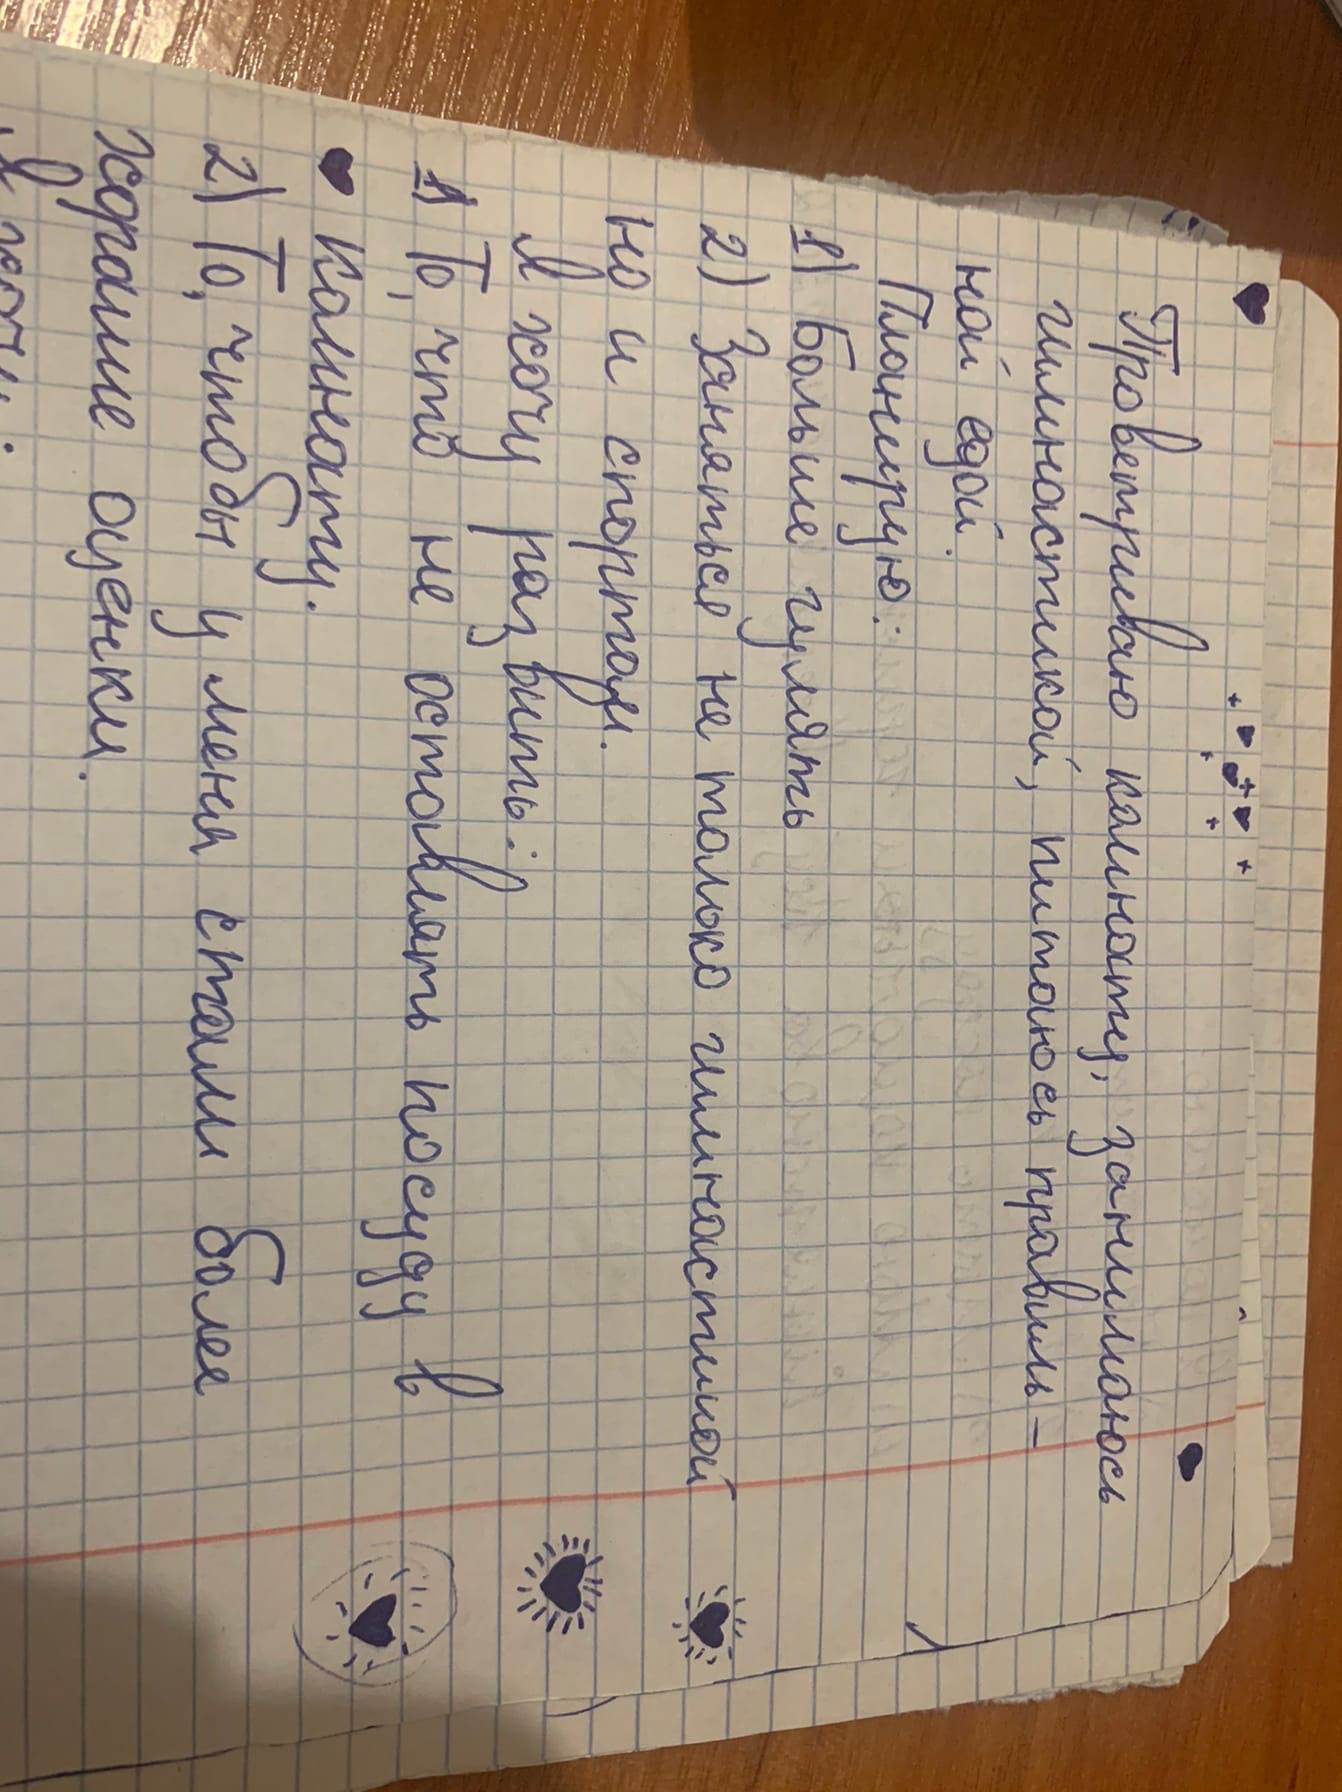 Проветриваю комнату, занимаюсь
гимнастикой, питаюсь правиль-
ной едой.
Планирую:
1) Больше гулять
2) Заняться не только гимнастикой
но и спортом.
Я хочу развить:
1) То, что не оставлять посуду в
комнату.
2) То, чтобы у меня стали более
хорошие оценки.